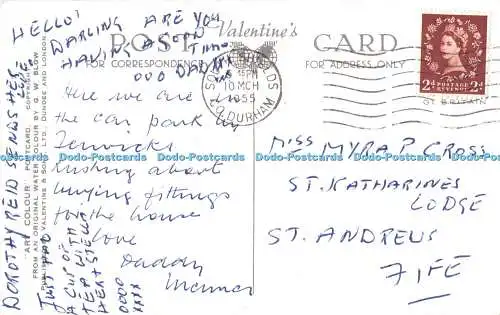 HELLO!
DARLING ARE YOU
HAVING A GOOD
TIME
OOO DADDY
xx
POST Valentine's CARD
FOR CORRESPONDENCE
FOR ADDRESS ONLY
15PM
10 MCH
1955
CO. DURHAM
2d POSTAGE REVENUE 2d
ST BRITAIN
Here we are
the car park by
Fenwicks
Rushing about
buying fittings
for the house
love
Daddy
Mummy
MISS MYRA P CROSS
ST. KATHARINES
LODGE
ST. ANDREWS
FIFE
DOROTHY REID SENDS HER
LOVE.
JUST HAD
A CUP OF
TEA WITH
HER
OOOO
xxxx
"ART COLOUR" POSTCARD. COPYRIGHT
FROM AN ORIGINAL WATER COLOUR BY G. W. BLOW
PUBLISHED BY VALENTINE & SONS, LTD., DUNDEE AND LONDON
Dodo-Postcards Dodo-Postcards Dodo-Postcards Dodo-Postcards Dodo-Postcards